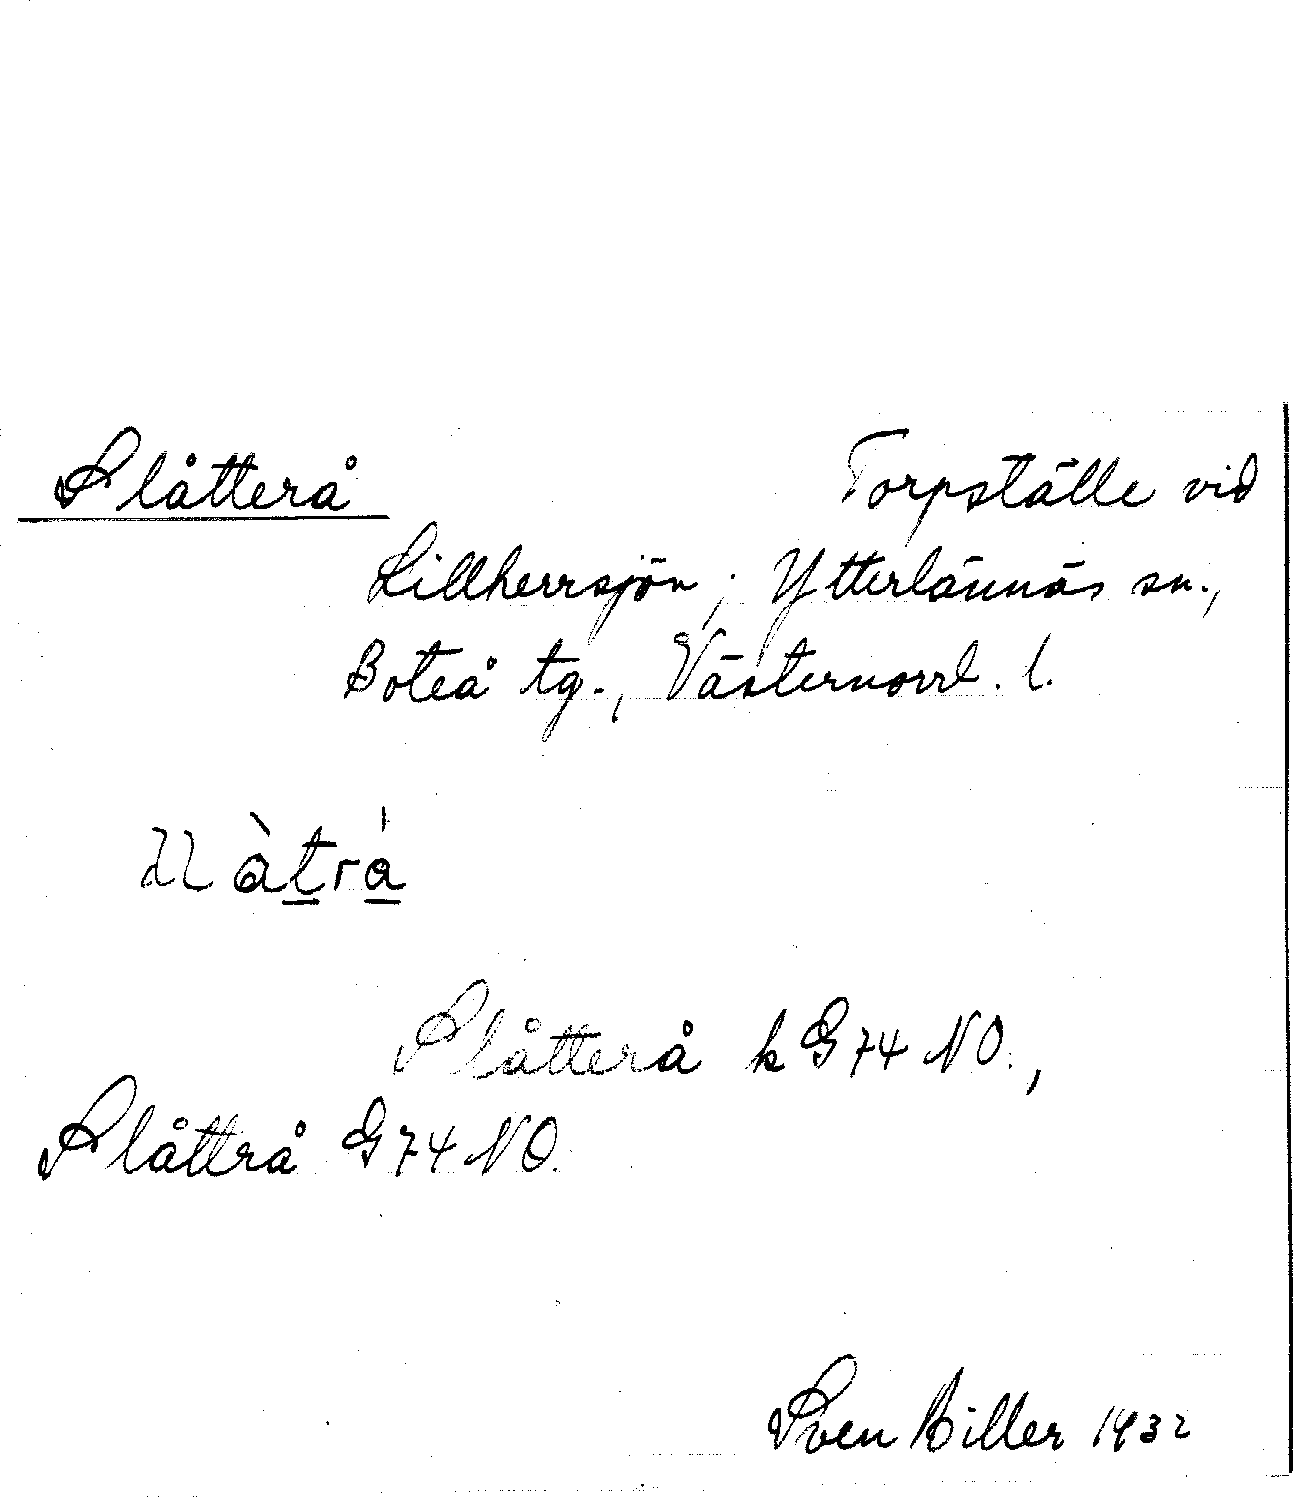 Slåtterå Torpställe vid
Lillherrsjön, Ytterlännäs sn.,
Boteå tg., Västernorrl. l.
àtrá
Slåtterå k G 74 NO.,
Slåttrå G 74 NO.
Sven Biller 1932